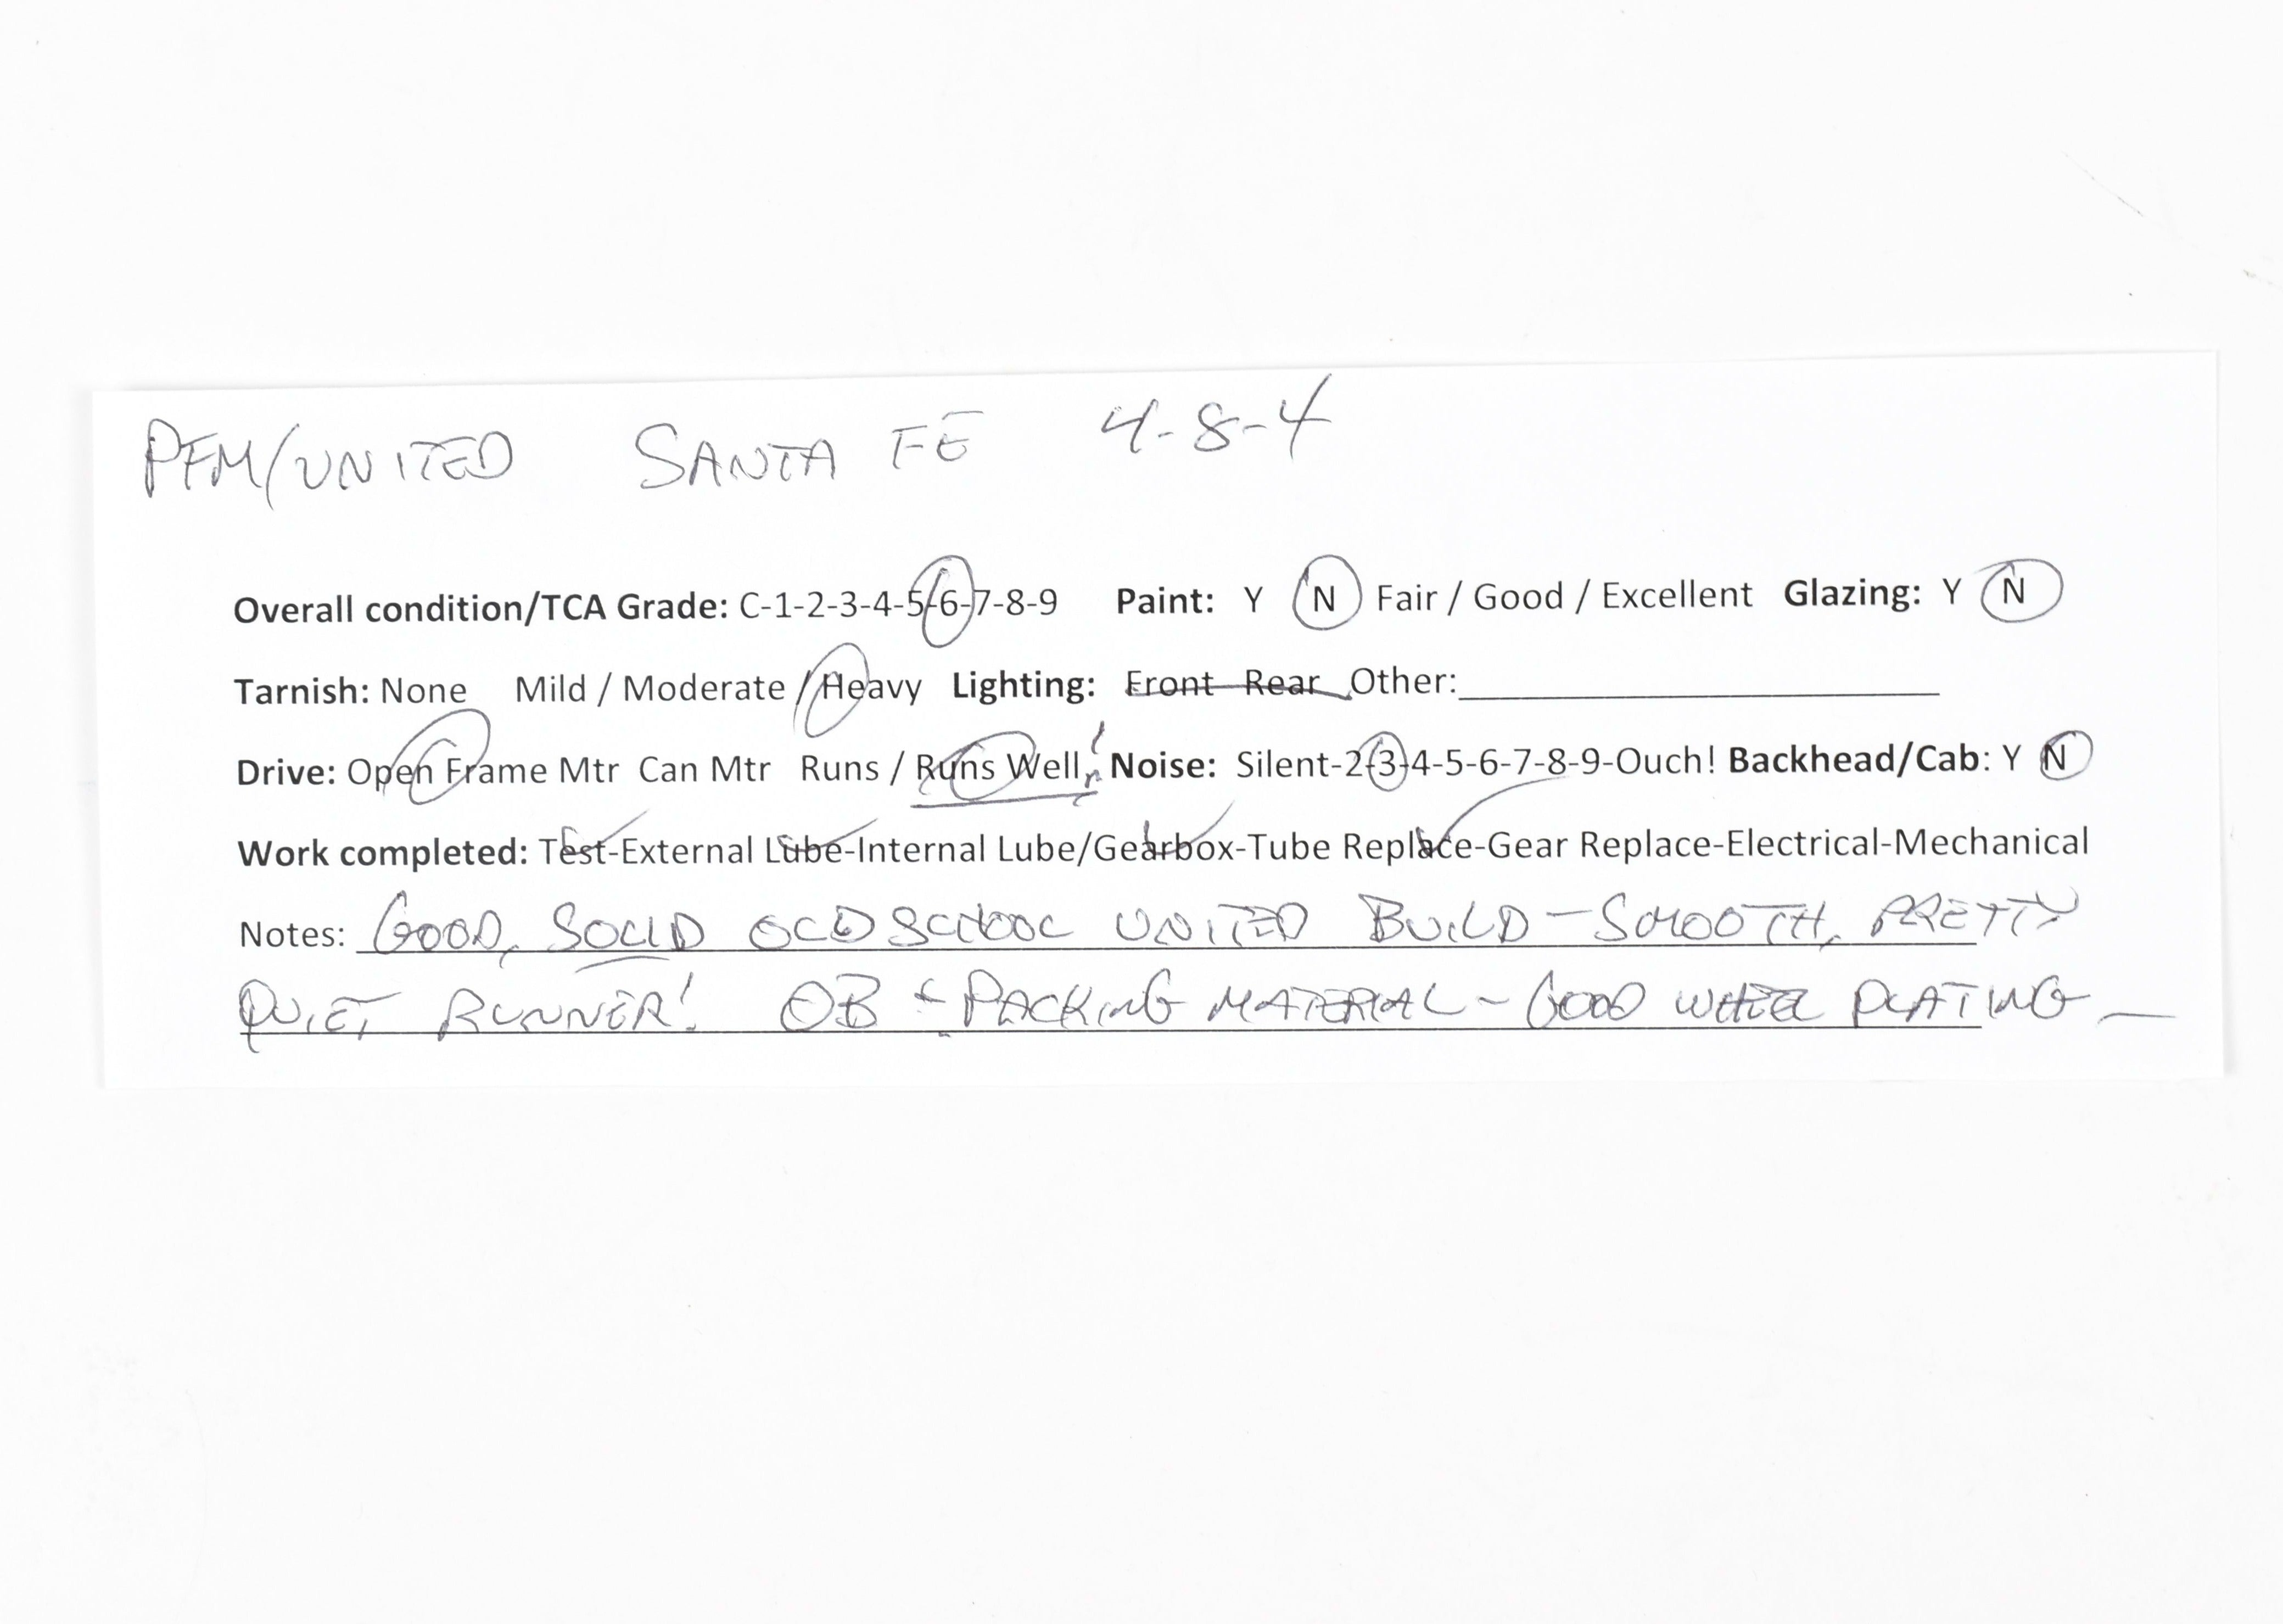 PFM/UNITED SANTA FE 4-8-4
Overall condition/TCA Grade: C-1-2-3-4-5-6-7-8-9 Paint: Y N Fair / Good / Excellent Glazing: Y N
Tarnish: None Mild / Moderate / Heavy Lighting: Front Rear Other:
Drive: Open Frame Mtr Can Mtr Runs / Runs Well! Noise: Silent-2-3-4-5-6-7-8-9-Ouch! Backhead/Cab: Y N
Work completed: Test-External Lube-Internal Lube/Gearbox-Tube Replace-Gear Replace-Electrical-Mechanical
Notes: GOOD, SOLID OLD SCHOOL UNITED BUILD - SMOOTH, PRETTY
QUIET RUNNER! OB + PACKING MATERIAL - GOOD WHEEL PLATING -